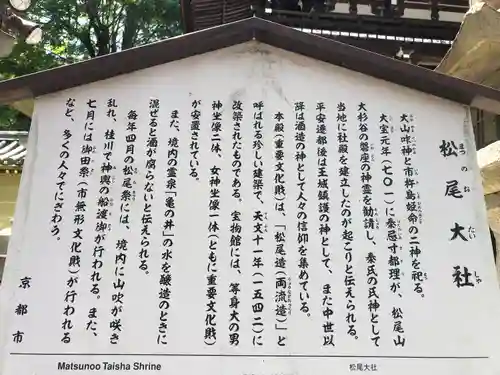 松尾大社
まつのおたいしゃ
大山咋神と市杵島姫命の二神を祀る。
大宝元年(七〇一)に秦忌寸都理が、松尾山
大杉谷の磐座の神霊を勧請し、秦氏の氏神として
当地に社殿を建立したのが起こりと伝えられる。
平安遷都後は王城鎮護の神として、また中世以
降は酒造の神として人々の信仰を集めている。
本殿(重要文化財)は、「松尾造(両流造)」と
呼ばれる珍しい建築で、天文十一年(一五四二)に
改築されたものである。宝物館には、等身大の男
神坐像二体、女神坐像一体(ともに重要文化財)
が安置されている。
また、境内の霊泉「亀の井」の水を醸造のときに
混ぜると酒が腐らないと伝えられる。
毎年四月の松尾祭には、境内に山吹が咲き
乱れ、桂川で神輿の船渡御が行われる。また、
七月には御田祭(市無形文化財)が行われる
など、多くの人々でにぎわう。
京都市
Matsunoo Taisha Shrine
松尾大社